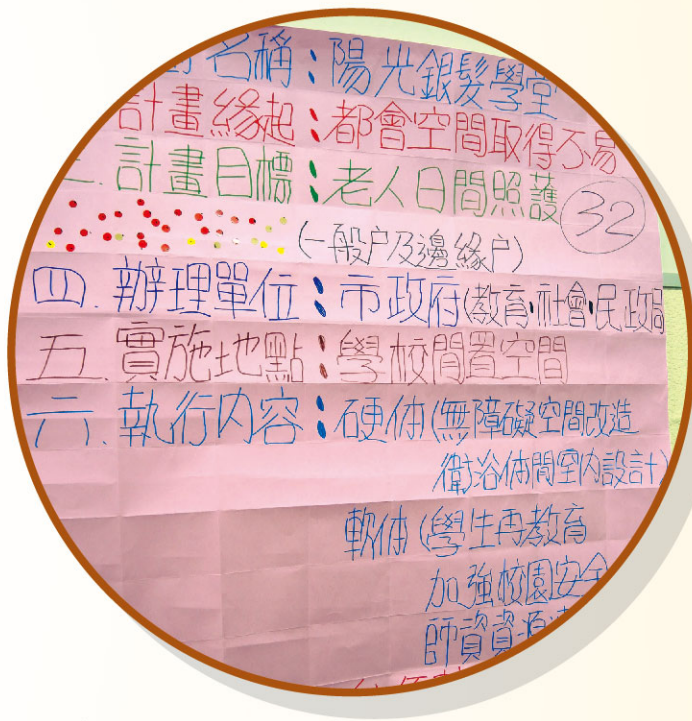 名稱：陽光銀髮學堂
計畫緣起：都會空間取得不易
計畫目標：老人日間照護
32
(一般户及邊緣户)
四.辦理單位：市政府(教育·社會·民政局
五.實施地點：學校閒置空間
六.執行内容：硬体(無障礙空間改造
衛浴休閒室內設計)
軟体(學生再教育
加強校園安全
師資資源